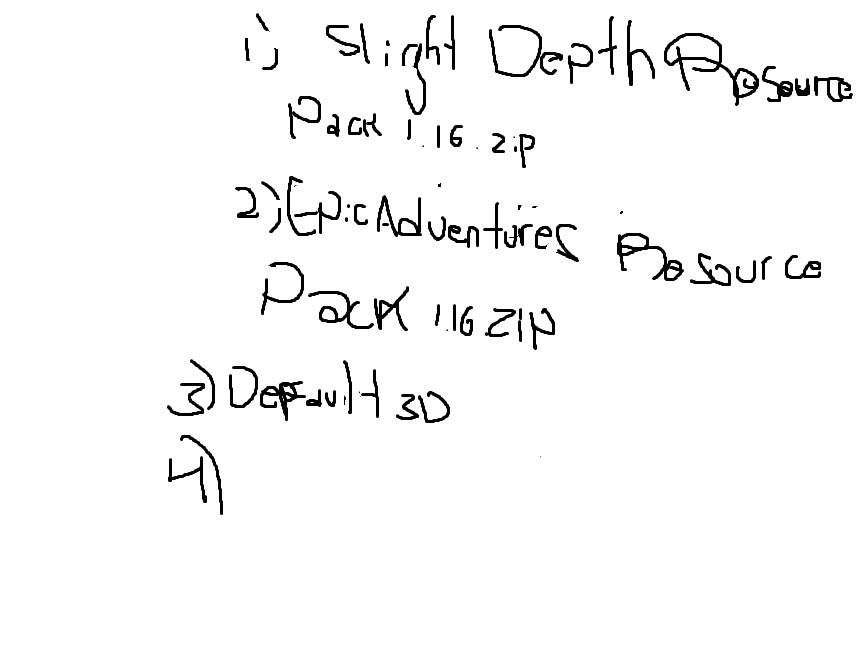 1) Slight Depth Resource
Pack 1.16.zip
2) Epic Adventures Resource
Pack 1.16 ZIP
3) Default 3D
4)